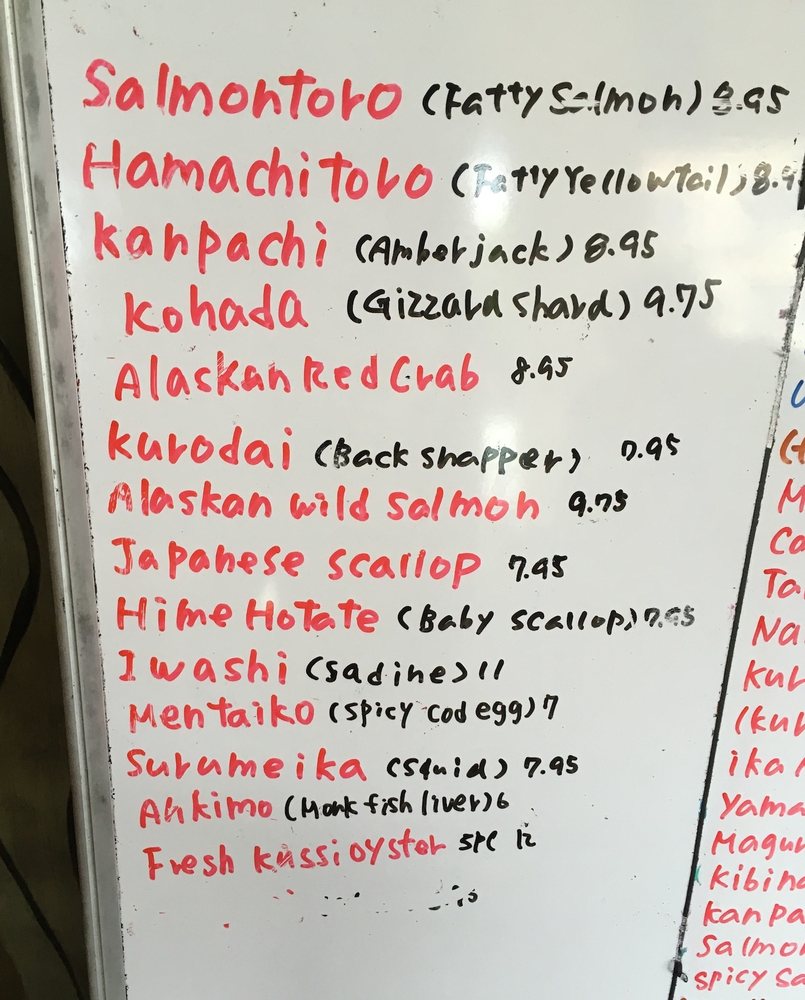 Salmontoro (Fatty Salmon) 8.95
Hamachi toro (Fatty Yellowtail) 8.9
kanpachi (Amberjack) 8.95
kohada (Gizzard shard) 9.75
Alaskan Red Crab 8.95
kurodai (Back snapper) 7.95
Alaskan wild salmon 9.75
Japanese scallop 7.95
Hime Hotate (Baby scallop) 7.95
Iwashi (sadine) 11
Mentaiko (spicy cod egg) 7
Surumeika (squid) 7.95
Ankimo (Monk fish liver) 6
Fresh kussi oyster 5pc 12
(
M
Ca
Ta
Na
kur
(kur
ika
Yama
Magur
kibina
kanpa
Salmon
spicy sa